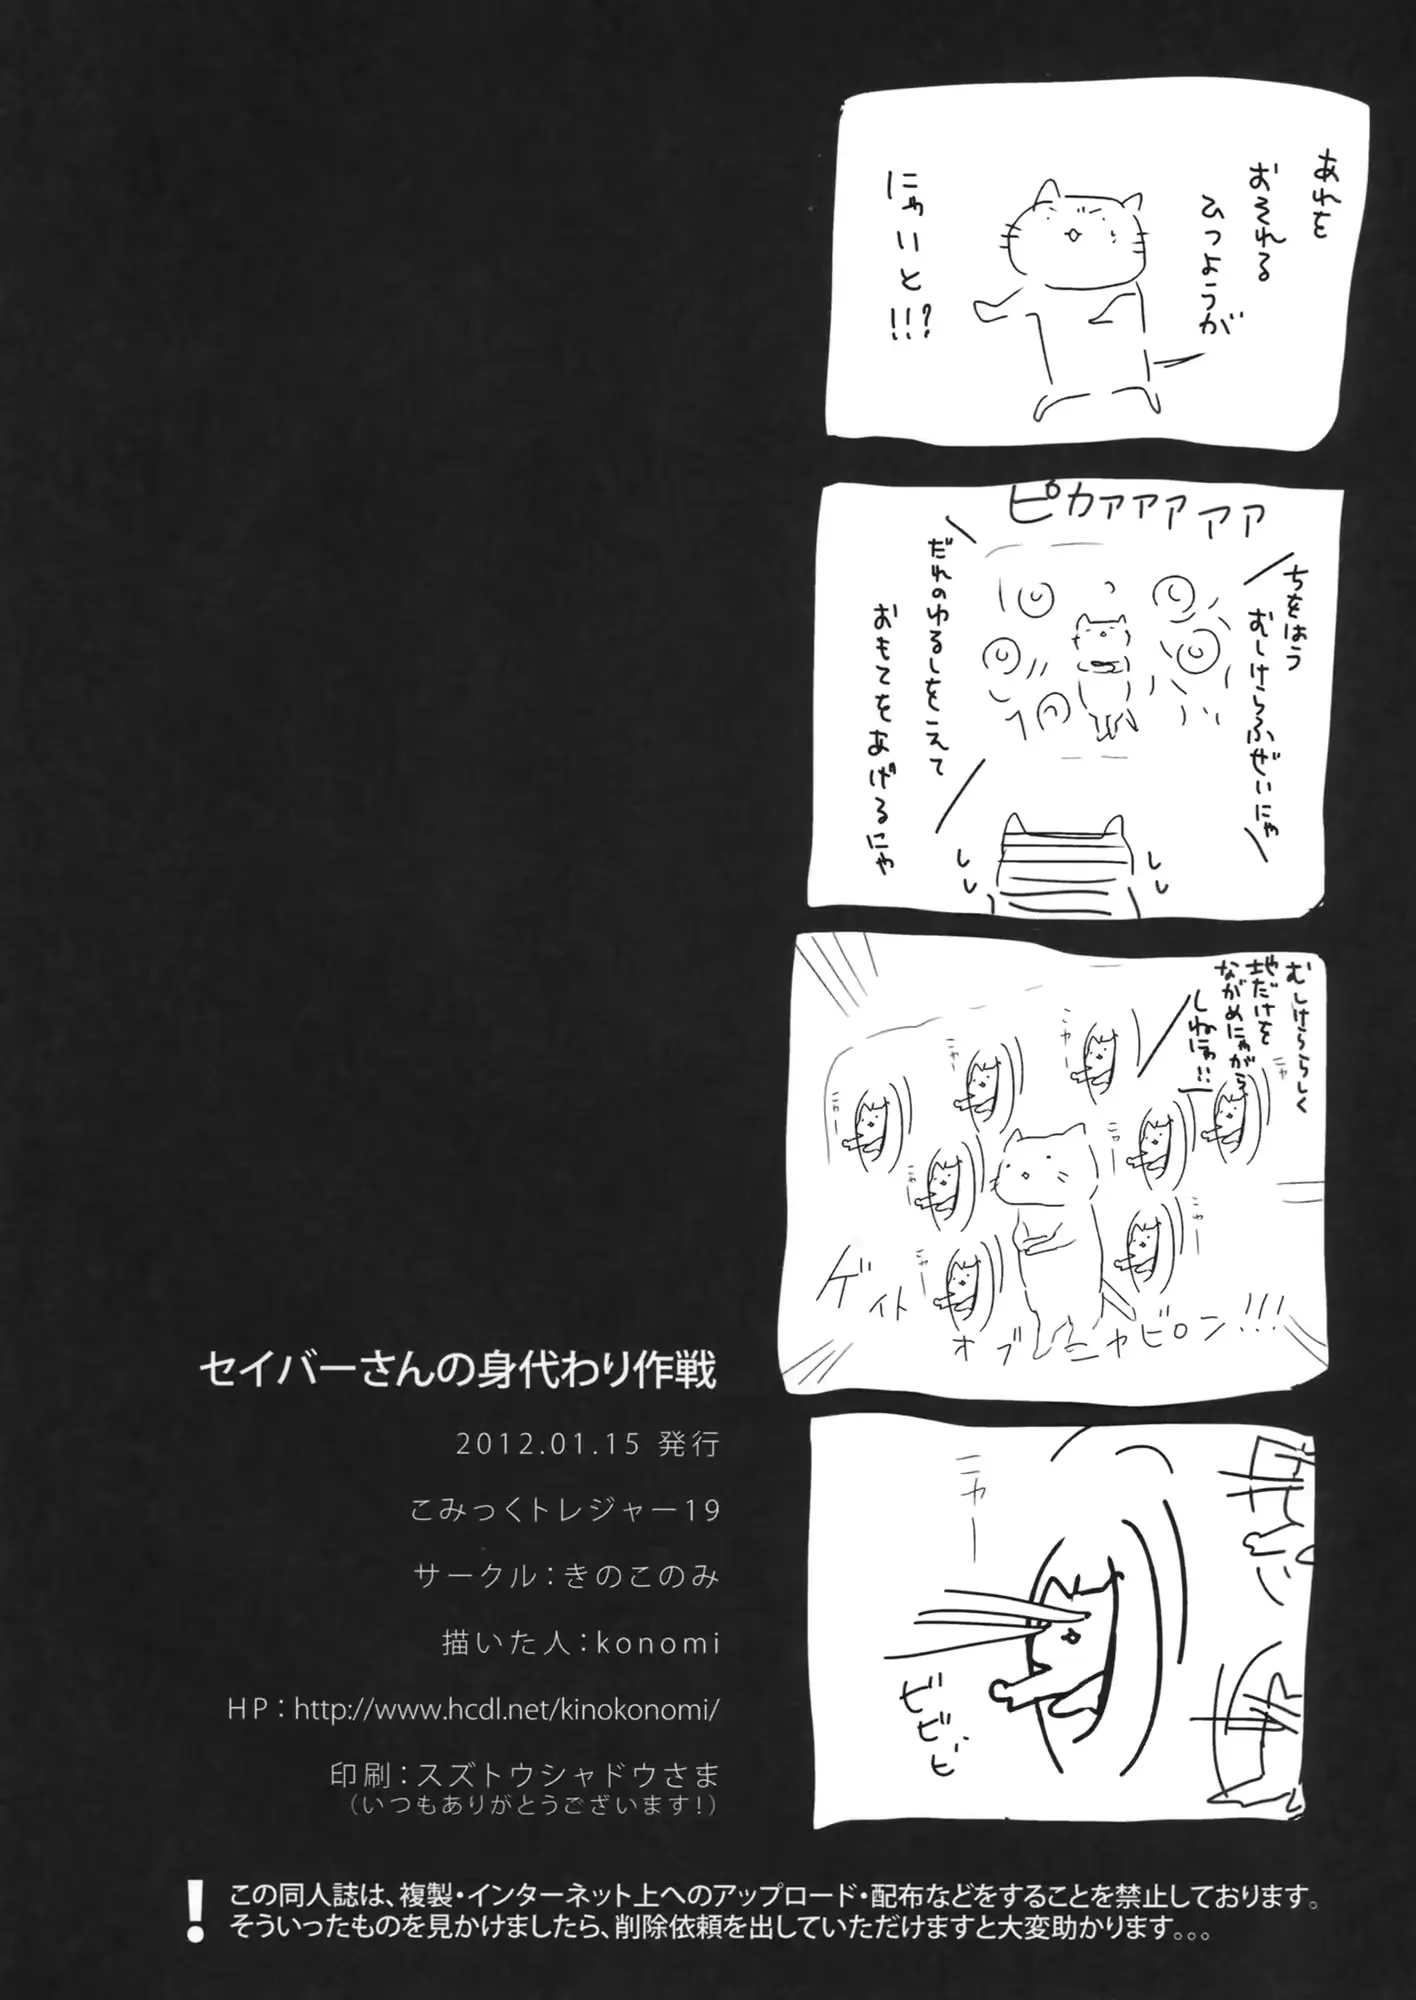 あれを
おそれる
ひつようが
にゃいと!!?
ピカァァァァァ
ちをはう
むしけらふぜいにゃ
だれのゆるしをえて
おもてをあげるにゃ
むしけらららしく
地だけを
ながめにゃがら
しねにゃ!!
ニャー
ニャー
ニャー
ニャー
ニャー
ニャー
ニャー
ニャー
ゲイト
オブ
ニャビロン!!!
ニャー
ビビビ
セイバーさんの身代わり作戦
2012.01.15 発行
こみっくトレジャー19
サークル：きのこのみ
描いた人：konomi
HP：http://www.hcdl.net/kinokonomi/
印刷：スズトウシャドウさま
（いつもありがとうございます！）
! この同人誌は、複製・インターネット上へのアップロード・配布などをすることを禁止しております。
そういったものを見かけましたら、削除依頼を出していただけますと大変助かります。。。